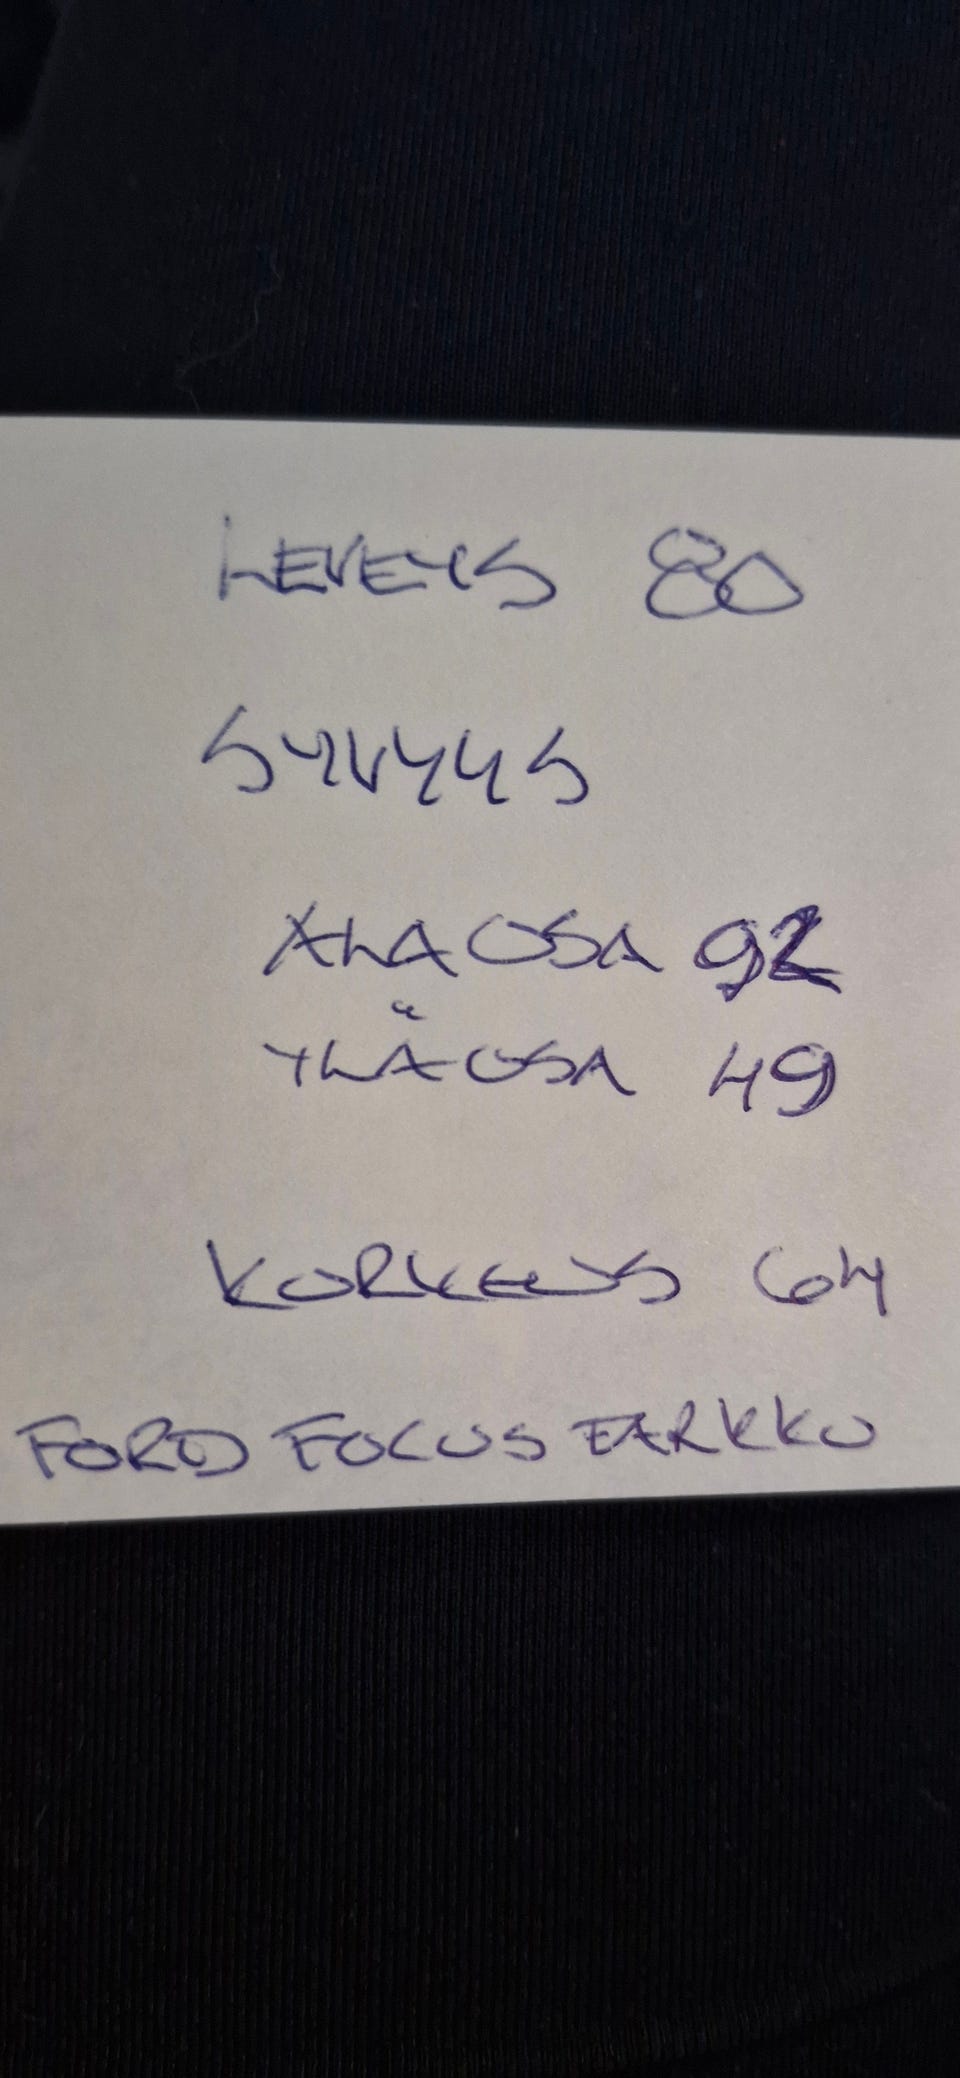 LEVEYS 80
SYVYYS
ALAOSA 92
YLÄOSA 49
KORKEUS 64
FORD FOCUS FARKKU